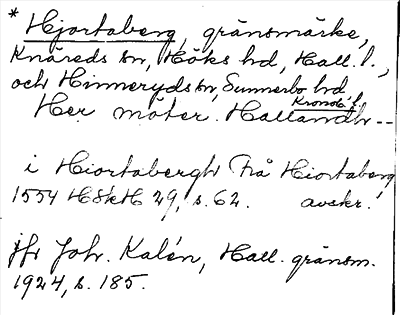 * Hjortaberg, gränsmärke,
Knäreds sn, Höks hd, Hall. l.,
och Hinneryds sn, Sunnerbo hd
Kronob. l.
Her möter. Hallandh --
i Hiortabergh Frå Hiortaberg
1554 HSkH 29, s. 62. avskr.
jfr Joh. Kalén, Hall. gränsm.
1924, s. 185.